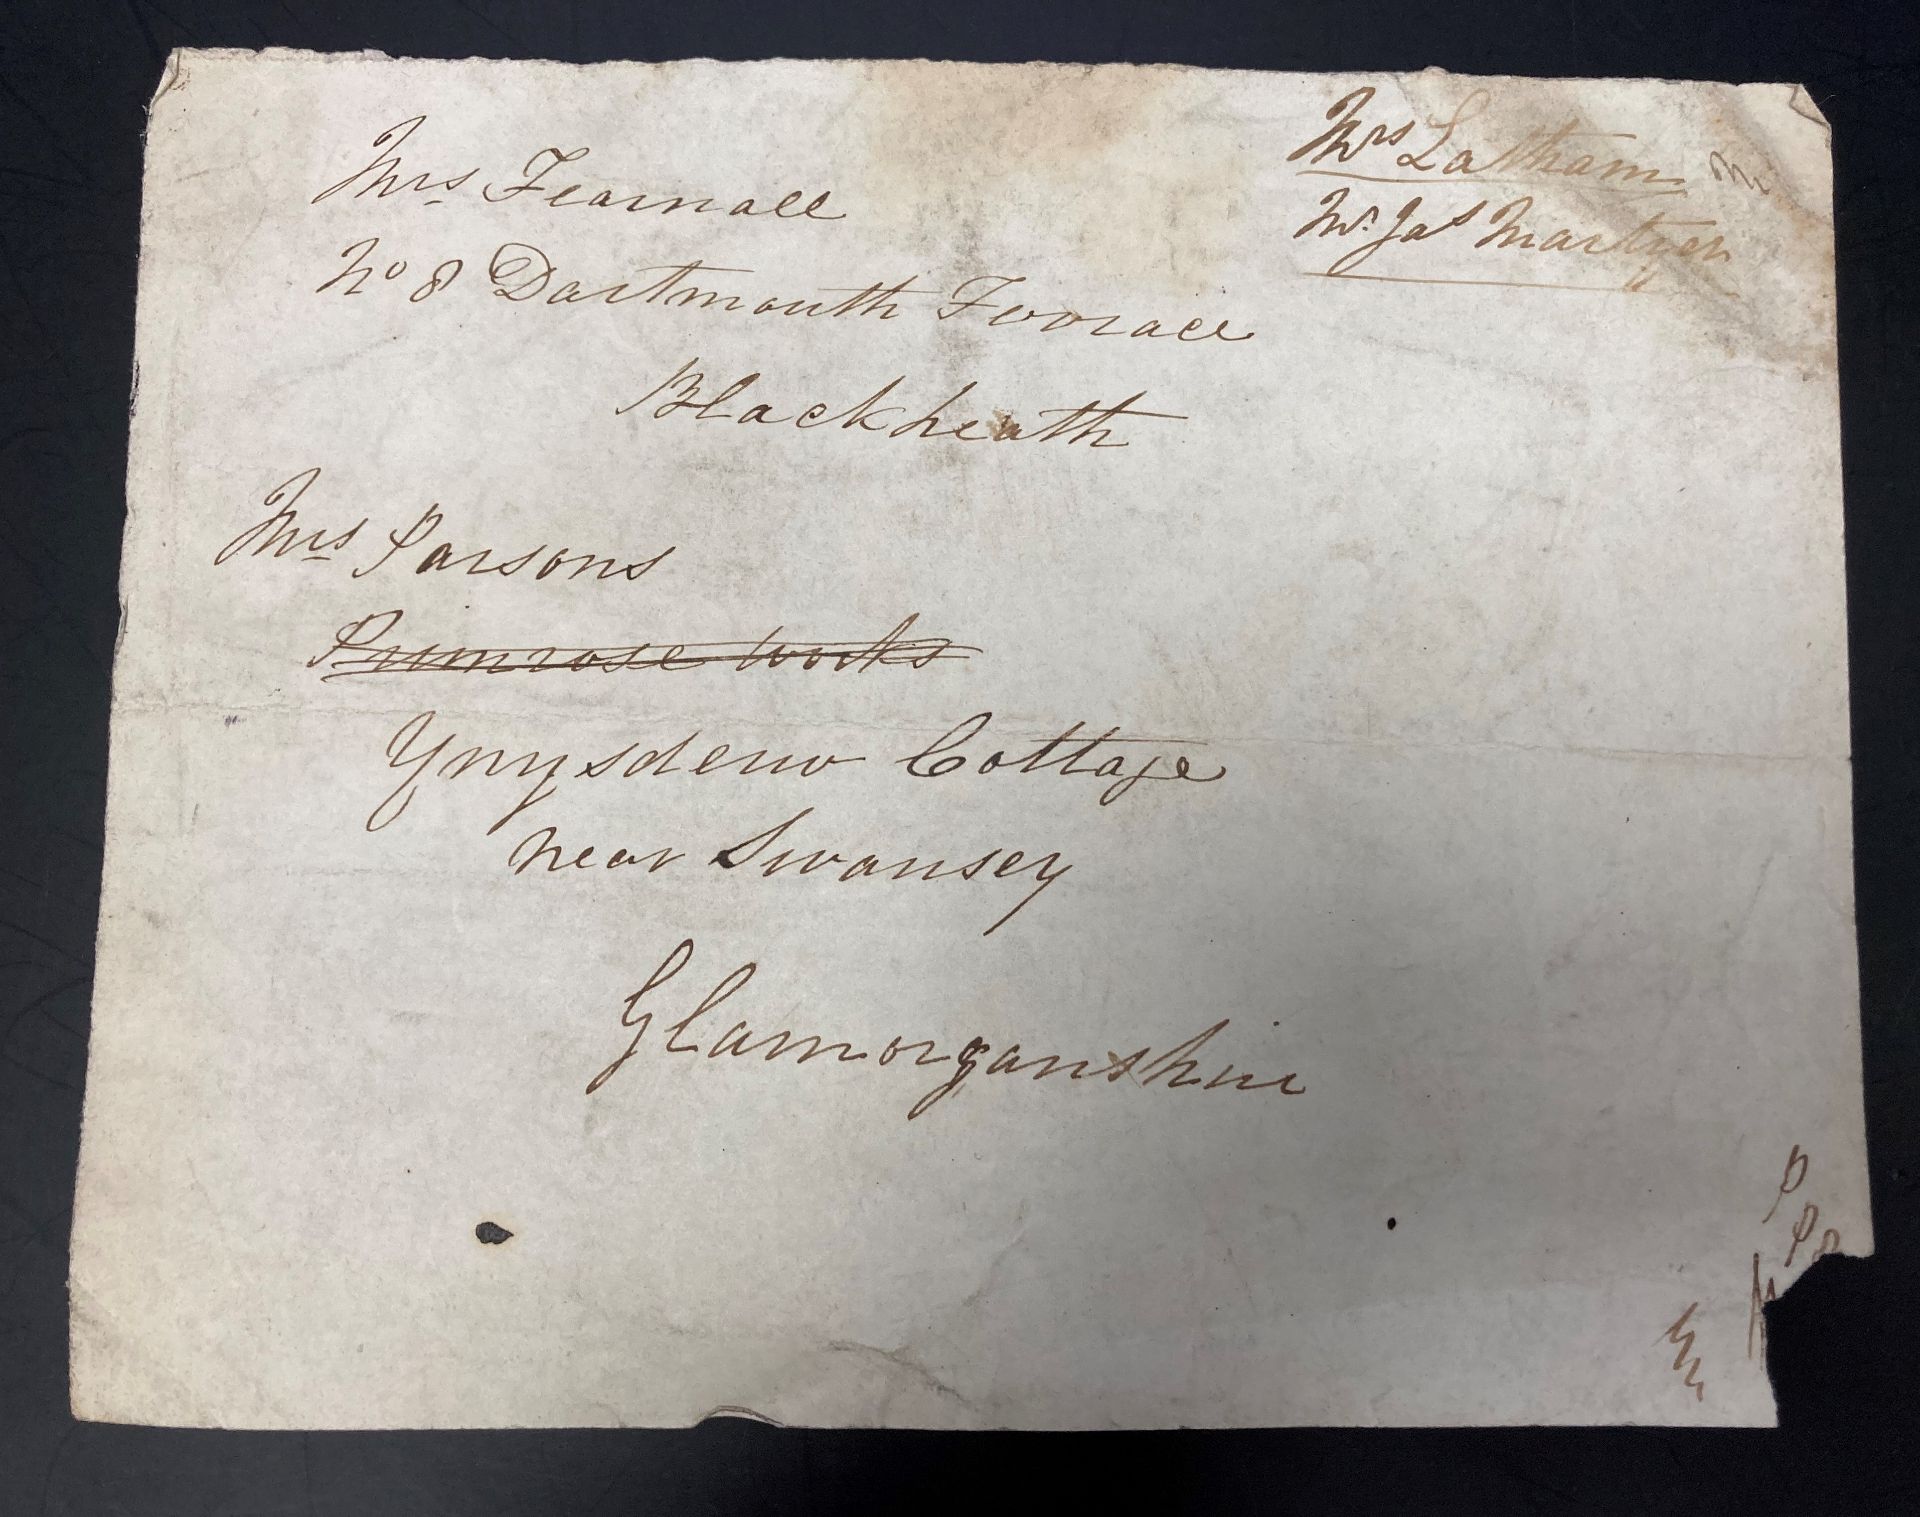 Mrs Latham
Mr Jas Martyen
Mrs Fearnall
No 8 Dartmouth Terrace
Blackheath
Mrs Parsons
Primrose Works
Ynysderw Cottage
near Swansey
Glamorganshire